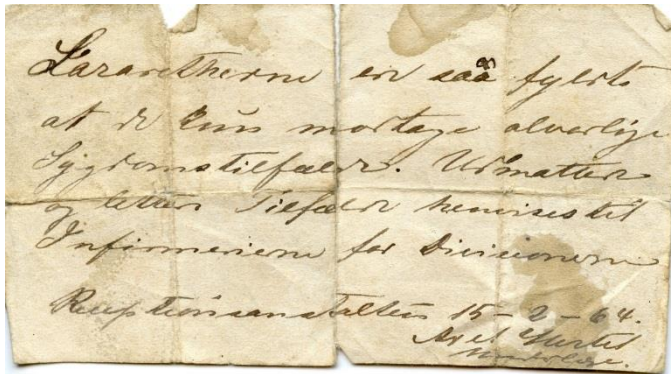 Lazaretherne er saa fyldte
at de kun modtage alvorlige
Sygdomstilfælde. Udmattede
og lettere Tilfælde henvises til
Infirmerierne for Divisionerne
Receptionsanstalten 15-2-64.
Axel Iversen